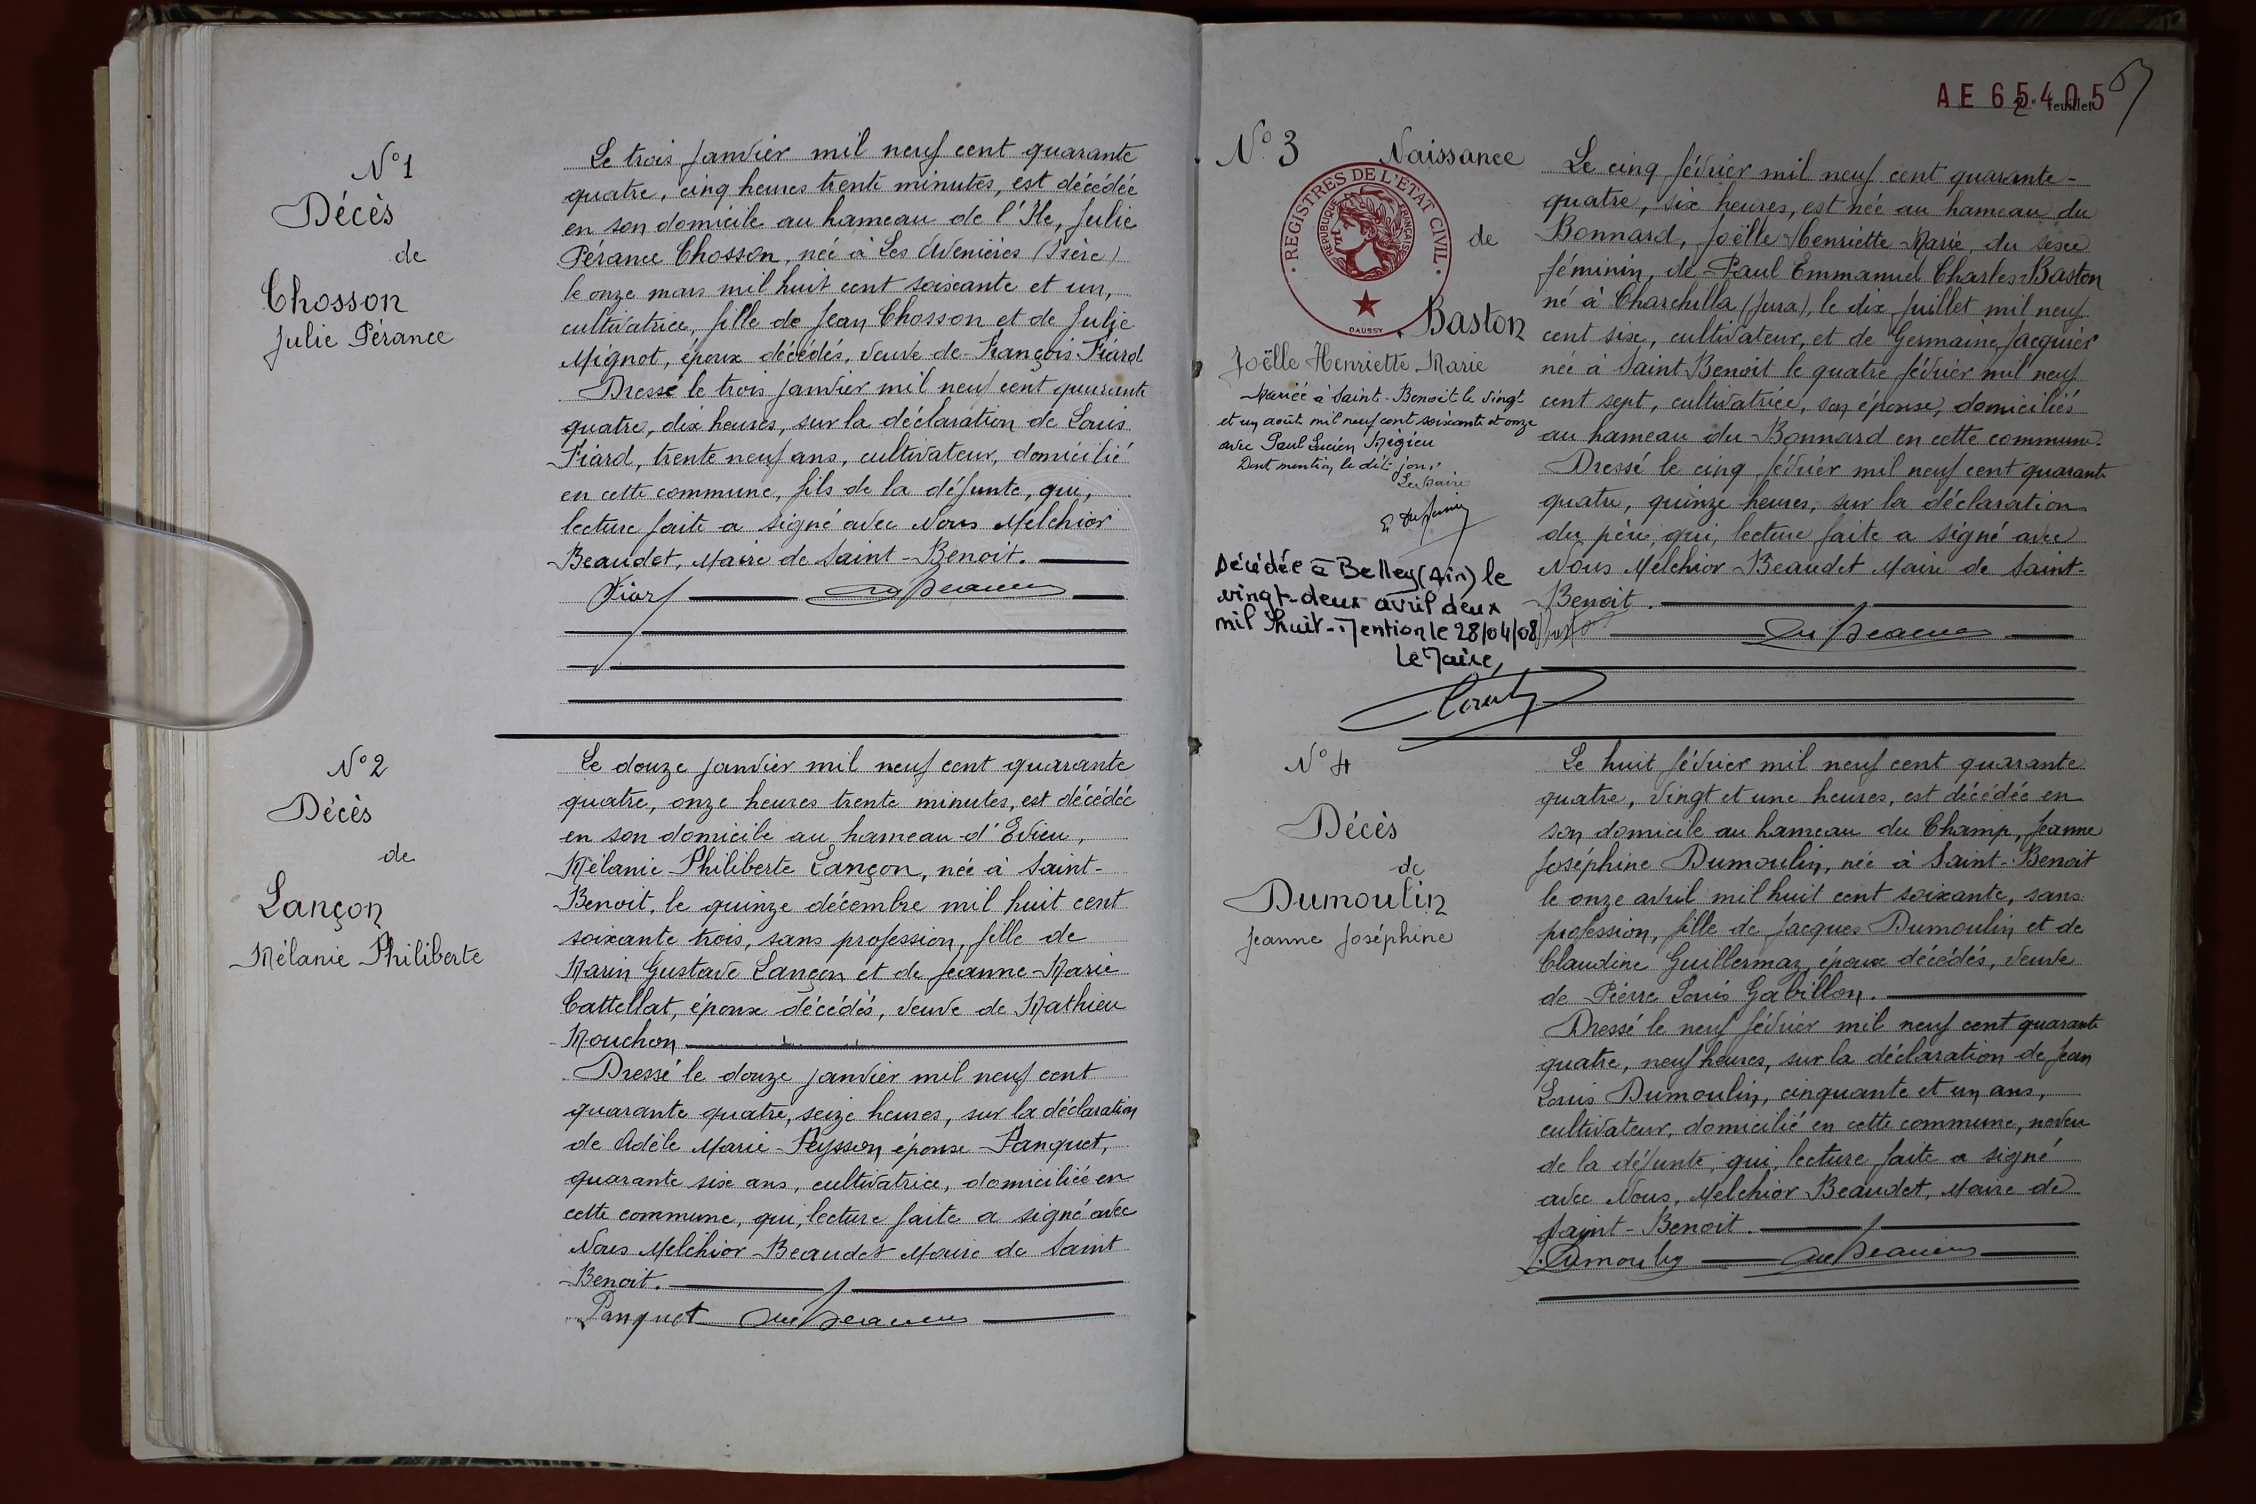 N° 1
Décès
de
Chosson
Julie Pérance
Le trois janvier mil neuf cent quarante
quatre, cinq heures trente minutes, est décédée
en son domicile au hameau de l'Ile, Julie
Pérance Chosson, née à Les Avenières (Isère)
le onze mars mil huit cent soixante et un,
cultivatrice, fille de Jean Chosson et de Julie
Mignot, époux décédés, veuve de François Fiard
Dressé le trois janvier mil neuf cent quarante
quatre, dix heures, sur la déclaration de Louis
Fiard, trente neuf ans, cultivateur, domicilié
en cette commune, fils de la défunte, qui,
lecture faite a signé avec Nous Melchior
Beaudet, Maire de Saint-Benoit.
Fiard
N° 2
Décès
de
Lançon
Mélanie Philiberte
Le douze janvier mil neuf cent quarante
quatre, onze heures trente minutes, est décédée
en son domicile au hameau d'Evieu,
Mélanie Philiberte Lançon, née à Saint-
Benoit, le quinze décembre mil huit cent
soixante trois, sans profession, fille de
Marin Gustave Lançon et de Jeanne Marie
Cattellat, époux décédés, veuve de Mathieu
Mouchon
Dressé le douze janvier mil neuf cent
quarante quatre, seize heures, sur la déclaration
de Adèle Marie Peysson épouse Panquet,
quarante six ans, cultivatrice, domiciliée en
cette commune, qui, lecture faite a signé avec
Nous Melchior Beaudet Maire de Saint
Benoit.
Panquet
AE 65405
2e feuillet
N° 3 Naissance
de
Baston
Joëlle Henriette Marie
REGISTRES DE L'ETAT CIVIL
REPUBLIQUE FRANÇAISE
DAUSSY
Mariée à Saint-Benoit le vingt
et un août mil neuf cent soixante et onze
avec Paul Lucien Mégieu
Dont mention le dit jour
Le Maire
Décédée à Belley (Ain) le
vingt-deux avril deux
mil huit - Mention le 28/04/08
Le Maire,
Le cinq février mil neuf cent quarante-
quatre, six heures, est née au hameau du
Bonnard, Joëlle Henriette Marie, du sexe
féminin, de Paul Emmanuel Charles Baston
né à Charchilla (Jura), le dix juillet mil neuf
cent six, cultivateur, et de Germaine Jacquier
née à Saint Benoit le quatre février mil neuf
cent sept, cultivatrice, son épouse, domiciliés
au hameau du Bonnard en cette commune.
Dressé le cinq février mil neuf cent quarante
quatre, quinze heures, sur la déclaration
du père, qui, lecture faite a signé avec
Nous Melchior Beaudet Maire de Saint-
Benoit.
N° 4
Décès
de
Dumoulin
Jeanne Joséphine
Le huit février mil neuf cent quarante
quatre, vingt et une heures, est décédée en
son domicile au hameau du Champ, Jeanne
Joséphine Dumoulin, née à Saint-Benoit
le onze avril mil huit cent soixante, sans
profession, fille de Jacques Dumoulin et de
Claudine Guillermaz, époux décédés, veuve
de Pierre Louis Gabillon.
Dressé le neuf février mil neuf cent quarante
quatre, neuf heures, sur la déclaration de Jean
Louis Dumoulin, cinquante et un ans,
cultivateur, domicilié en cette commune, neveu
de la défunte, qui, lecture faite a signé
avec Nous, Melchior Beaudet, Maire de
Saint-Benoit.
Dumoulin